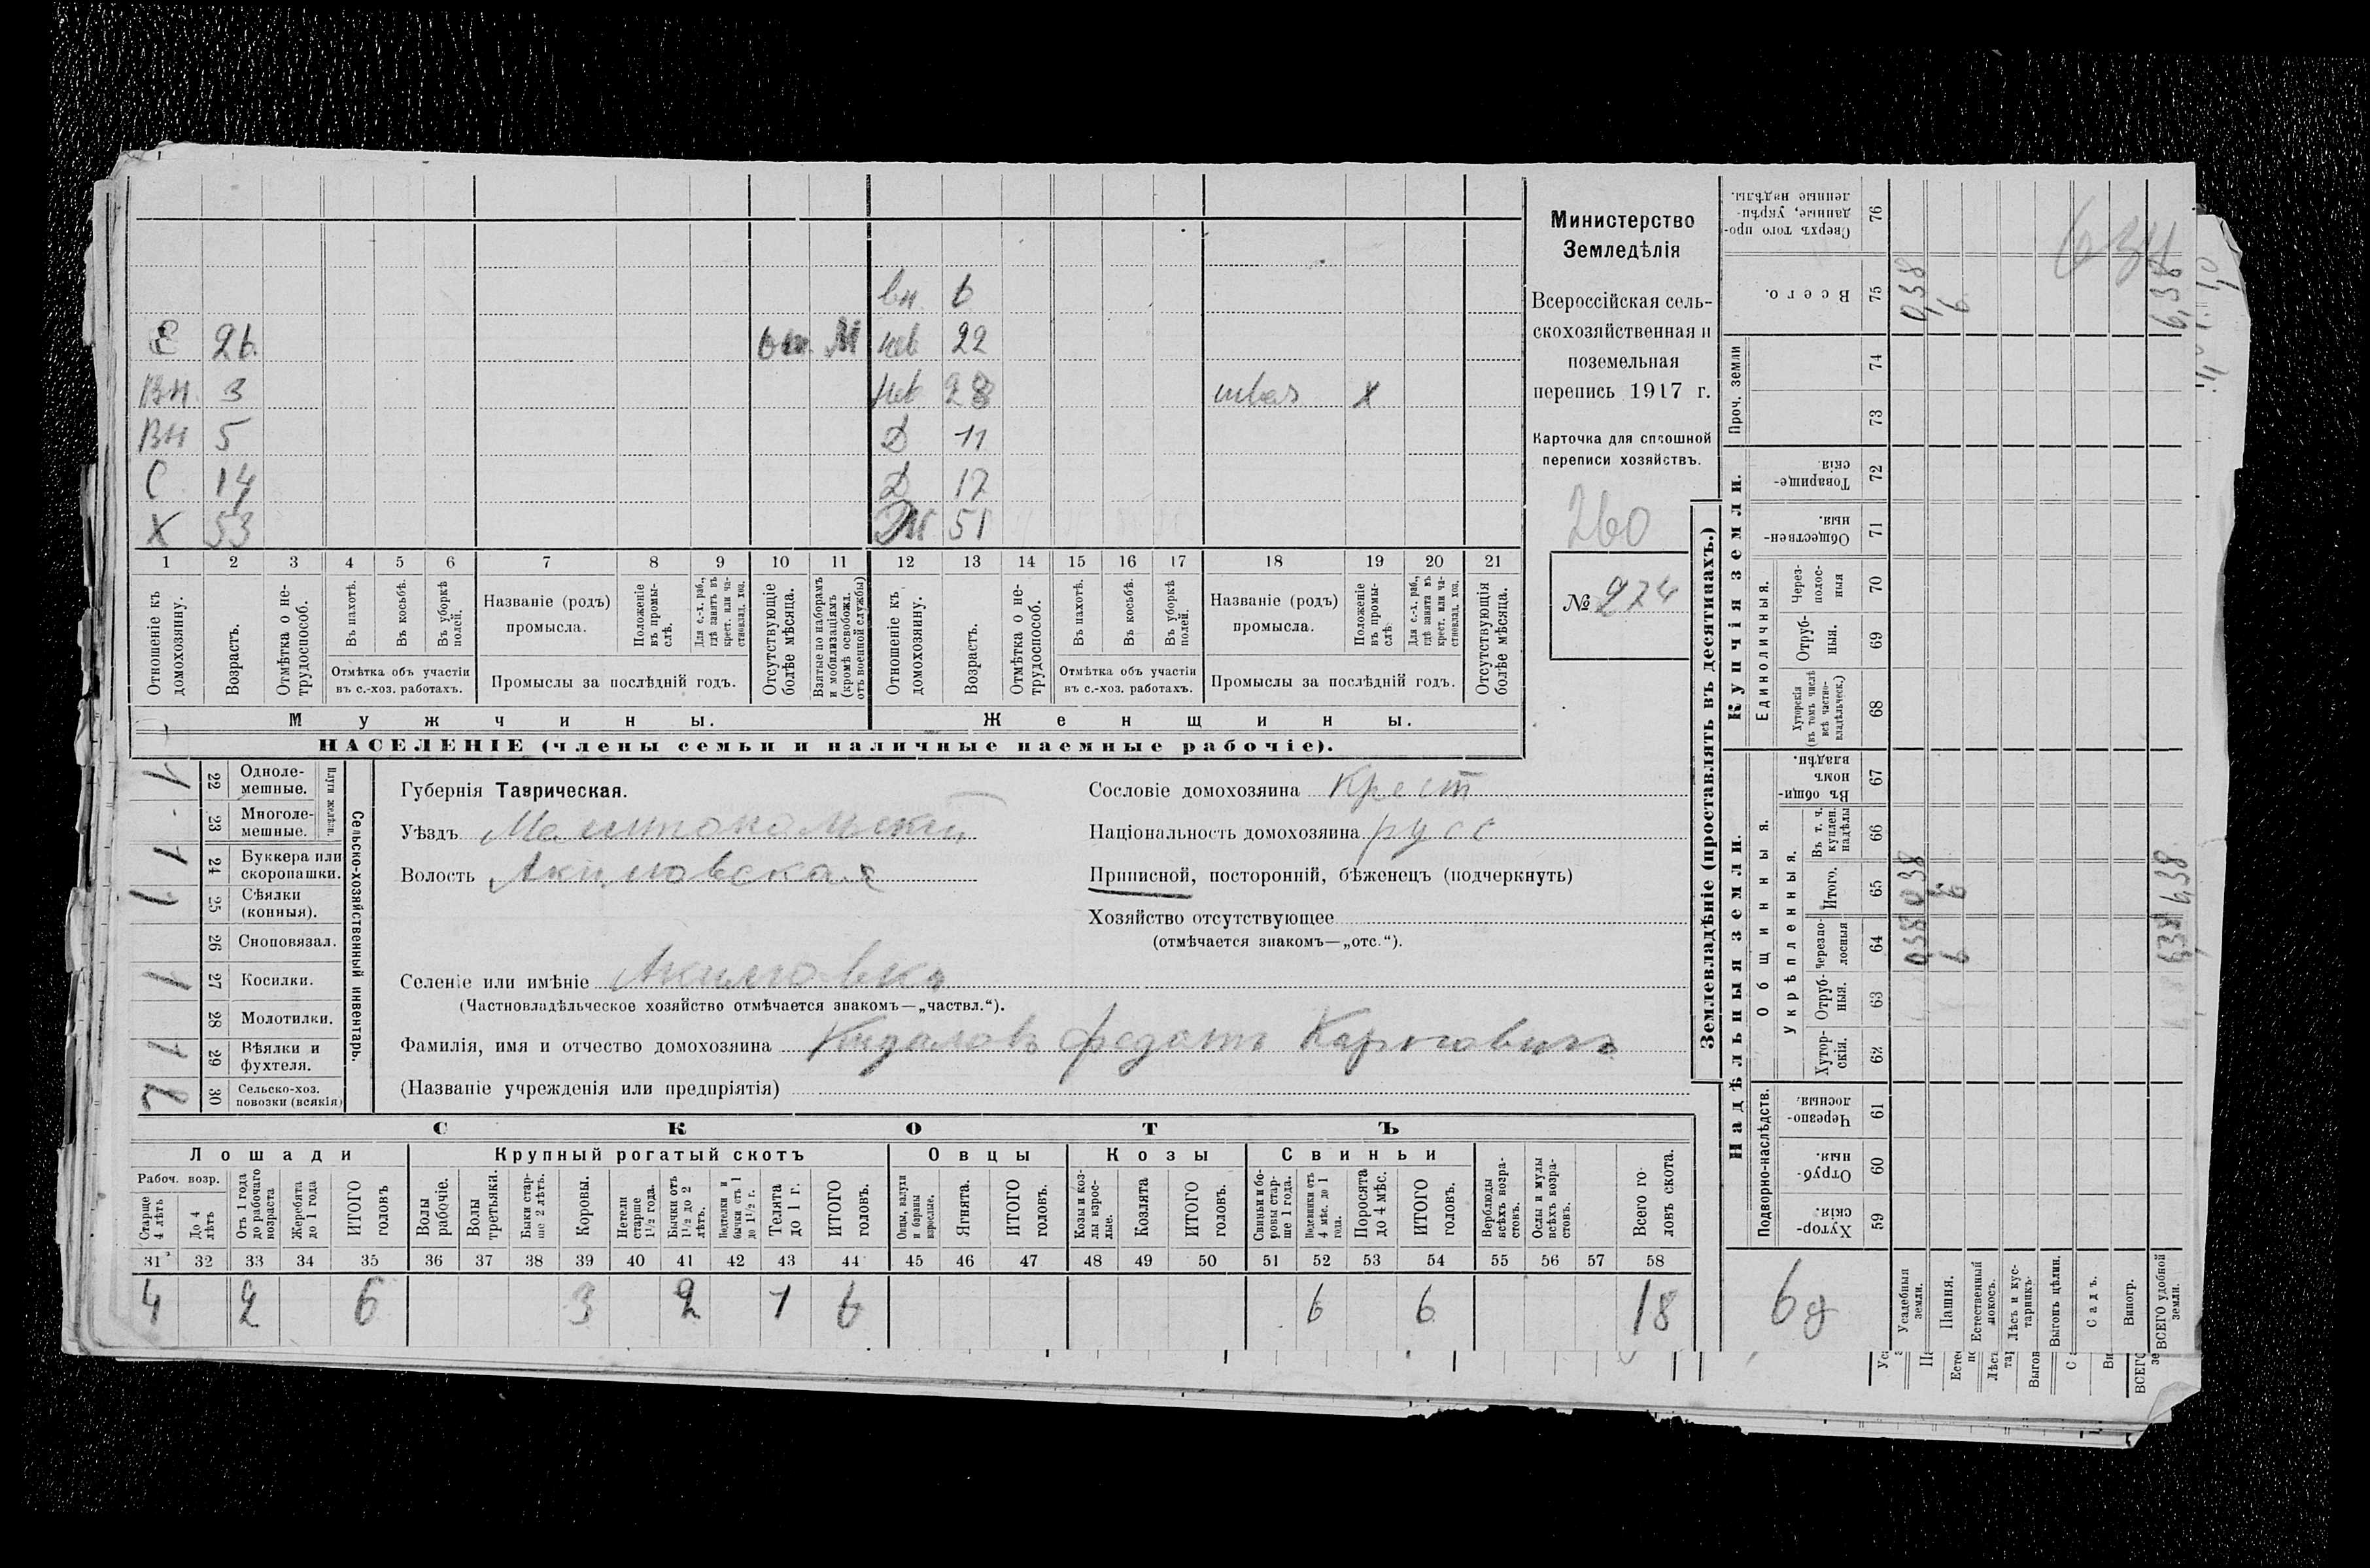 Министерство
Земледѣлія
Всероссійская сель-
скохозяйственная и
поземельная
перепись 1917 г.
Карточка для сплошной
переписи хозяйствъ.
260
№ 274
вн. 6
26 нев 22
Вн. 3 нев 28 швея X
Вн 5 Д 11
С 14 Д 17
X 53 Ж 51
1 2 3 4 5 6 7 8 9 10 11 12 13 14 15 16 17 18 19 20 21
Отношеніе къ домохозяину.
Возрастъ.
Отмѣтка о не-трудоспособ.
Въ пахотѣ.
Въ косьбѣ.
Въ уборкѣ полей.
Отмѣтка объ участіи
въ с.-хоз. работахъ.
Названіе (родъ)
промысла.
Положеніе въ промы-слѣ.
Для с.-х. раб., гдѣ занятъ въ крест. или ча-стновлад. хоз.
Промыслы за послѣдній годъ.
Отсутствующіе болѣе мѣсяца.
Взятые по наборамъ и мобилизаціямъ (кромѣ освобожд. отъ военной службы)
Отношеніе къ домохозяину.
Возрастъ.
Отмѣтка о не-трудоспособ.
Въ пахотѣ.
Въ косьбѣ.
Въ уборкѣ полей.
Отмѣтка объ участіи
въ с.-хоз. работахъ.
Названіе (родъ)
промысла.
Положеніе въ промы-слѣ.
Для с.-х. раб., гдѣ занята въ крест. или ча-стновлад. хоз.
Промыслы за послѣдній годъ.
Отсутствующія болѣе мѣсяца.
Мужчины. Женщины.
НАСЕЛЕНІЕ (члены семьи и наличные наемные рабочіе).
Сельско-хозяйственный инвентарь.
Плуги желѣзн.
22 Одноле-мешные. 1
23 Многоле-мешные.
24 Буккера или скоропашки. 1
25 Сѣялки (конныя). 1
26 Сноповязал.
27 Косилки. 1
28 Молотилки.
29 Вѣялки и фухтеля. 1
30 Сельско-хоз. повозки (всякія) 2
Губернія Таврическая.
Уѣздъ Мелитопольскій
Волость Акимовская
Селеніе или имѣніе Акимовка
(Частновладѣльческое хозяйство отмѣчается знакомъ—„частвл.“).
Фамилія, имя и отчество домохозяина Федотъ Карповичъ
(Названіе учрежденія или предпріятія)
Сословіе домохозяина Крест
Національность домохозяина русс
Приписной, посторонній, бѣженецъ (подчеркнуть)
Хозяйство отсутствующее
(отмѣчается знакомъ—„отс.“).
СКОТЪ
Лошади Крупный рогатый скотъ Овцы Козы Свиньи
Рабоч. возр.
Старше 4 лѣтъ
До 4 лѣтъ
Отъ 1 года до рабочаго возраста
Жеребята до 1 года
ИТОГО головъ
Волы рабочіе.
Волы третьяки.
Быки стар-ше 2 лѣтъ.
Коровы.
Нетели старше 1½ года.
Бычки отъ 1½ до 2 лѣтъ.
Подтелки и бычки отъ 1 до 1½ г.
Телята до 1 г.
ИТОГО головъ.
Овцы, валухи и бараны взрослые.
Ягнята.
ИТОГО головъ.
Козы и коз-лы взрос-лые.
Козлята
ИТОГО головъ.
Свиньи и бо-ровы стар-ше 1 года.
Подсвинки отъ 4 мѣс. до 1 года.
Поросята до 4 мѣс.
ИТОГО головъ.
Верблюды всѣхъ возра-стовъ.
Ослы и мулы всѣхъ возра-стовъ.
Всего го-ловъ скота.
31 32 33 34 35 36 37 38 39 40 41 42 43 44 45 46 47 48 49 50 51 52 53 54 55 56 57 58
4 2 6 3 2 1 6 6 6 18
Землевладѣніе (проставлять въ десятинахъ.)
Надѣльныя земли. Купчія земли.
Подворно-наслѣдств.
Общинныя.
Укрѣпленныя.
Единоличныя.
Проч. земли
Хутор-скія. 59
Отруб-ныя. 60
Черезпо-лосныя. 61
Хутор-скія. 62
Отруб-ныя. 63
Черезпо-лосныя 64
Итого. 65
Въ т. ч. куплен. надѣлы 66
Въ общи-номъ владѣн. 67
Хуторскія (въ томъ числѣ всѣ частно-владѣльческ.) 68
Отруб-ныя. 69
Через-полос-ныя 70
Обществен-ныя. 71
Товарище-скія. 72
73
74
Всего. 75
Сверхъ того про-данные, укрѣп-ленные надѣлы. 76
Усадебныя земли. 0,38 0,38 0,38
Пашня. 6 6 6
Естественный покосъ.
Лѣсъ и кус-тарникъ.
Выгонъ цѣлин.
Садъ.
Виногр.
ВСЕГО удобной земли. 6,38 6,38 6,38
634